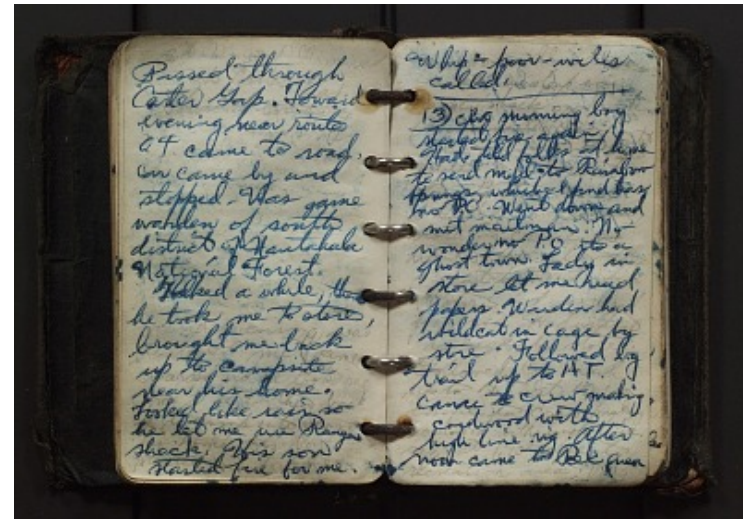 Passed through
Carter Gap. Toward
evening near route
64 came to road,
car came by and
stopped. Was game
warden of south
district of Nantahala
National Forest.
Talked a while, then
he took me to store,
brought me back
up to campsite
near his home.
Looked like rain so
he let me use Ranger
shack. His son
started fire for me.
Whip-poor-wills
called.
13) morning boy
started fire again.
Had told folks at home
to send mail to Rainbow
Springs which I find has
no PO. Went down and
met mailman. No
wonder no PO its a
ghost town. Lady in
store let me read
papers. Warden had
wildcat in cage by
store. Followed
trail up to AT.
came to crew making
cordwood with
high line rig. After
noon came to